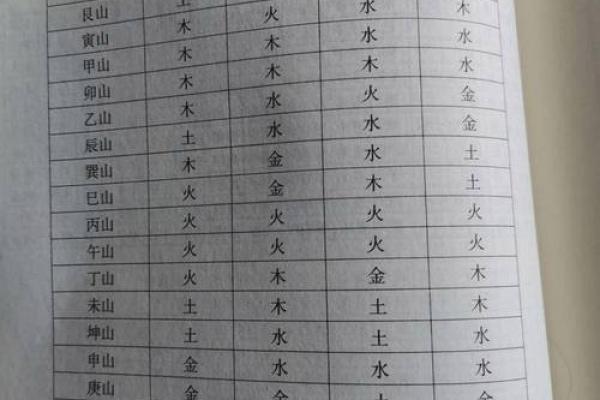 艮山 土
寅山 木 火 水 木
甲山 木 木 水 水
卯山 木 木 木 水
乙山 木 水 火 金
辰山 土 水 水 金
巽山 木 金 水 土
巳山 火 金 木 土
丙山 火 火 火 火
午山 火 火 火 火
丁山 火 木 金 木
未山 土 木 土 木
坤山 土 水 土 水
申山 金 水 水 水
庚山 金 金 金